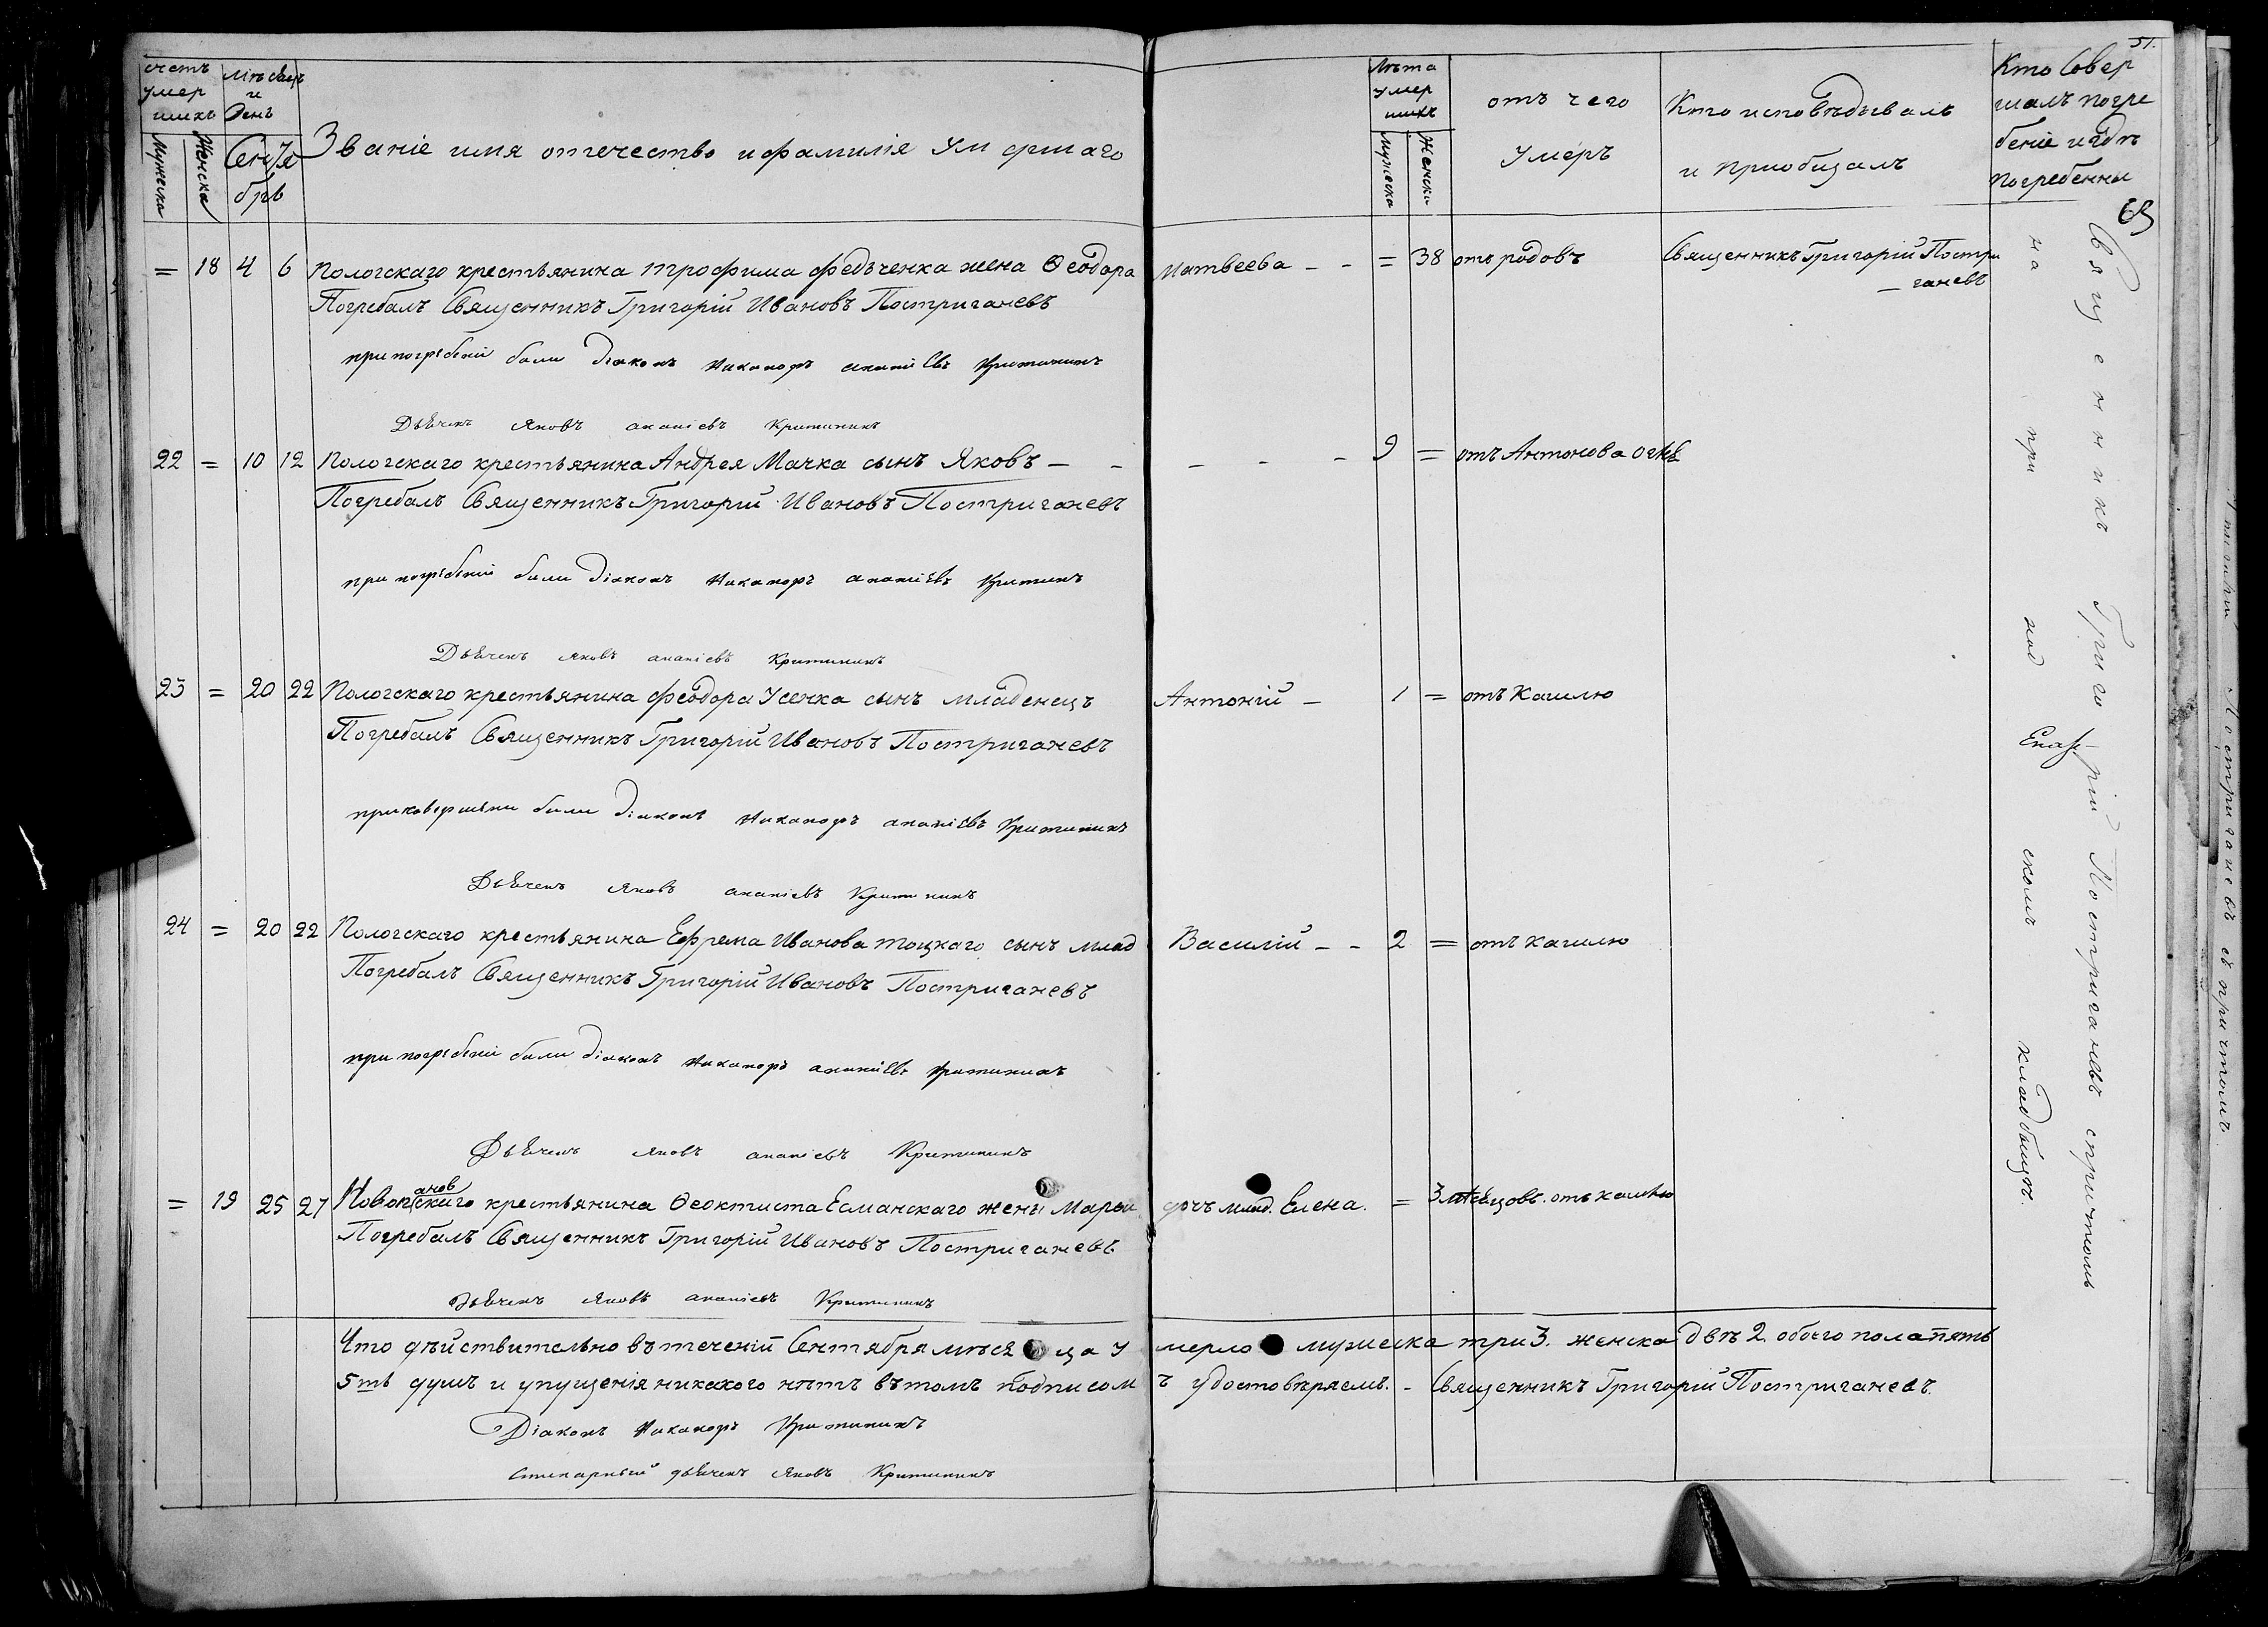 51.
счетъ умершихъ
Мужеска Женска
Мѣсяцъ и День
Сентябрь
Званіе имя отечество и фамилія Умершаго
Лѣта умершихъ
Мужеска Женски
отъ чего Умеръ
Кто исповѣдывалъ и приобщалъ
Кто Совершалъ погребеніе и гдѣ погребенны
= 18 4 6 Пологскаго крестьянина трофима федѣченка жена Ѳеодора Матвеева - - = 38 отъ родовъ Священникъ Григорій Постри
ганевъ
Погребалъ Священникъ Григорій Ивановъ Постриганевъ
при погребеніи были діаконъ Никаноръ ананіевъ Критининъ
Дьячекъ Яковъ ананіевъ Критининъ
22 = 10 12 Пологскаго крестьянина Андрея Мачка сынъ Яковъ - - - - - 9 = отъ Антонова огня
Погребалъ Священникъ Григорій Ивановъ Постриганевъ
при погребеніи были діаконъ Никаноръ ананіевъ Критинъ
Дьячекъ Яковъ ананіевъ Критининъ
23 = 20 22 Пологскаго крестьянина феодора Усенка сынъ младенецъ Антоній - 1 = отъ Кашлю
Погребалъ Священникъ Григорій Ивановъ Постриганевъ
были діаконъ Никаноръ ананіевъ Критининъ
Дьячекъ Яковъ ананіевъ Критининъ
24 = 20 22 Пологскаго крестьянина Ефрема Иванова тоцкаго сынъ млад Василій - - 2 = отъ кашлю
Погребалъ Священникъ Григорій Ивановъ Постриганевъ
при погребеніи были діаконъ Никаноръ ананіевъ Критининъ
Дьячекъ Яковъ ананіевъ Критининъ
= 19 25 27 крестьянина Ѳеоктиста Есманскаго жены Марыи дочъ млад. Елена. = 3 мѣсяцовъ. отъ кашлю
Погребалъ Священникъ Григорій Ивановъ Постриганевъ
Дьячекъ Яковъ ананіевъ Критининъ
Что дѣйствительно въ теченій Сентября мѣсяца умерло мужеска три 3. женска двѣ 2 обоего пола пять
5ть душъ и упущенія никакого нѣтъ въ томъ подписомъ удостовѣряемъ. - Священникъ Григорій Постриганевъ.
Діаконъ Никаноръ Критининъ
дьячекъ Яковъ Критининъ
Священникъ Григорій Постриганевъ спричтомъ
на при ход скомъ кладбищѣ